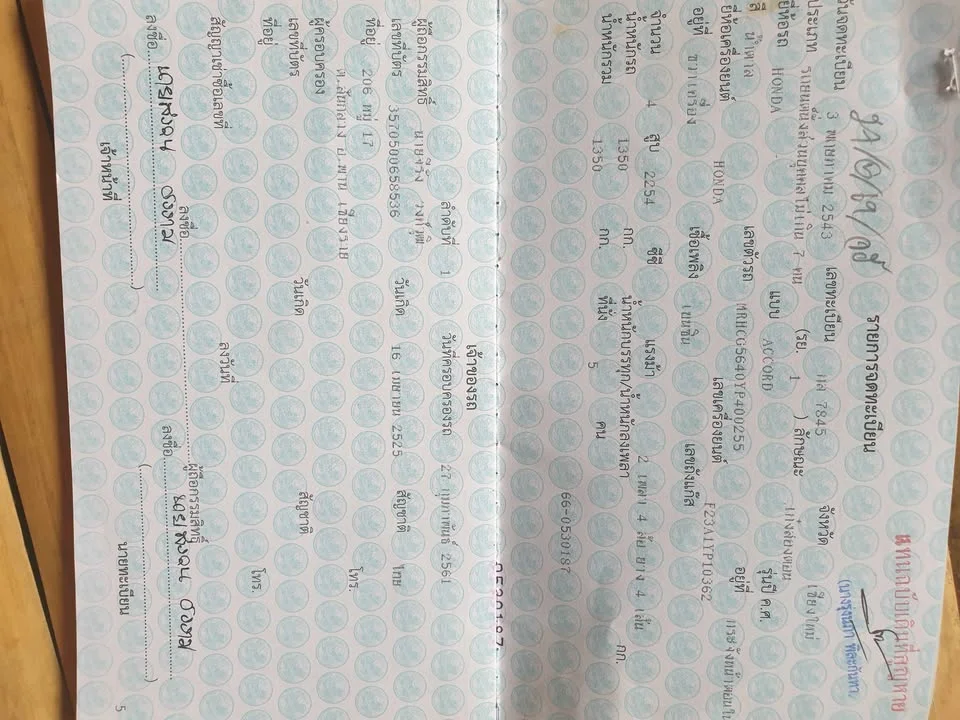 แทนฉบับเดิมที่สูญหาย
รายการจดทะเบียน
วันจดทะเบียน 3 พฤษภาคม 2543 เลขทะเบียน 7845 จังหวัด เชียงใหม่
ประเภท รถยนต์นั่งส่วนบุคคลไม่เกิน 7 คน (รย. 1 ) ลักษณะ เก๋งสองตอน
ยี่ห้อรถ HONDA แบบ ACCORD รุ่นปี ค.ศ.
สี น้ำตาล เลขตัวรถ MRHCG5640YP400255 อยู่ที่
ยี่ห้อเครื่องยนต์ HONDA เลขเครื่องยนต์ F23A1YP10362
อยู่ที่ ขวาเครื่อง เชื้อเพลิง เบนซิน เลขถังแก๊ส
จำนวน 4 สูบ 2254 ซีซี แรงม้า 2 เพลา 4 ล้อ ยาง 4 เส้น
น้ำหนักรถ 1350 กก. น้ำหนักบรรทุก/น้ำหนักลงเพลา กก.
น้ำหนักรวม 1350 กก. ที่นั่ง 5 คน
66-0530187
0530187
เจ้าของรถ
ลำดับที่ 1 วันที่ครอบครองรถ 27 กุมภาพันธ์ 2561
ผู้ถือกรรมสิทธิ์
เลขที่บัตร 3570500658536 วันเกิด 16 เมษายน 2525 สัญชาติ ไทย
ที่อยู่ 206 หมู่ 17 โทร.
อ.พาน เชียงราย
ผู้ครอบครอง
เลขที่บัตร วันเกิด สัญชาติ
ที่อยู่ โทร.
สัญญาเช่าซื้อเลขที่ ลงวันที่
ลงชื่อ ผู้ถือกรรมสิทธิ์
ลงชื่อ ลงชื่อ
เจ้าหน้าที่ นายทะเบียน
5